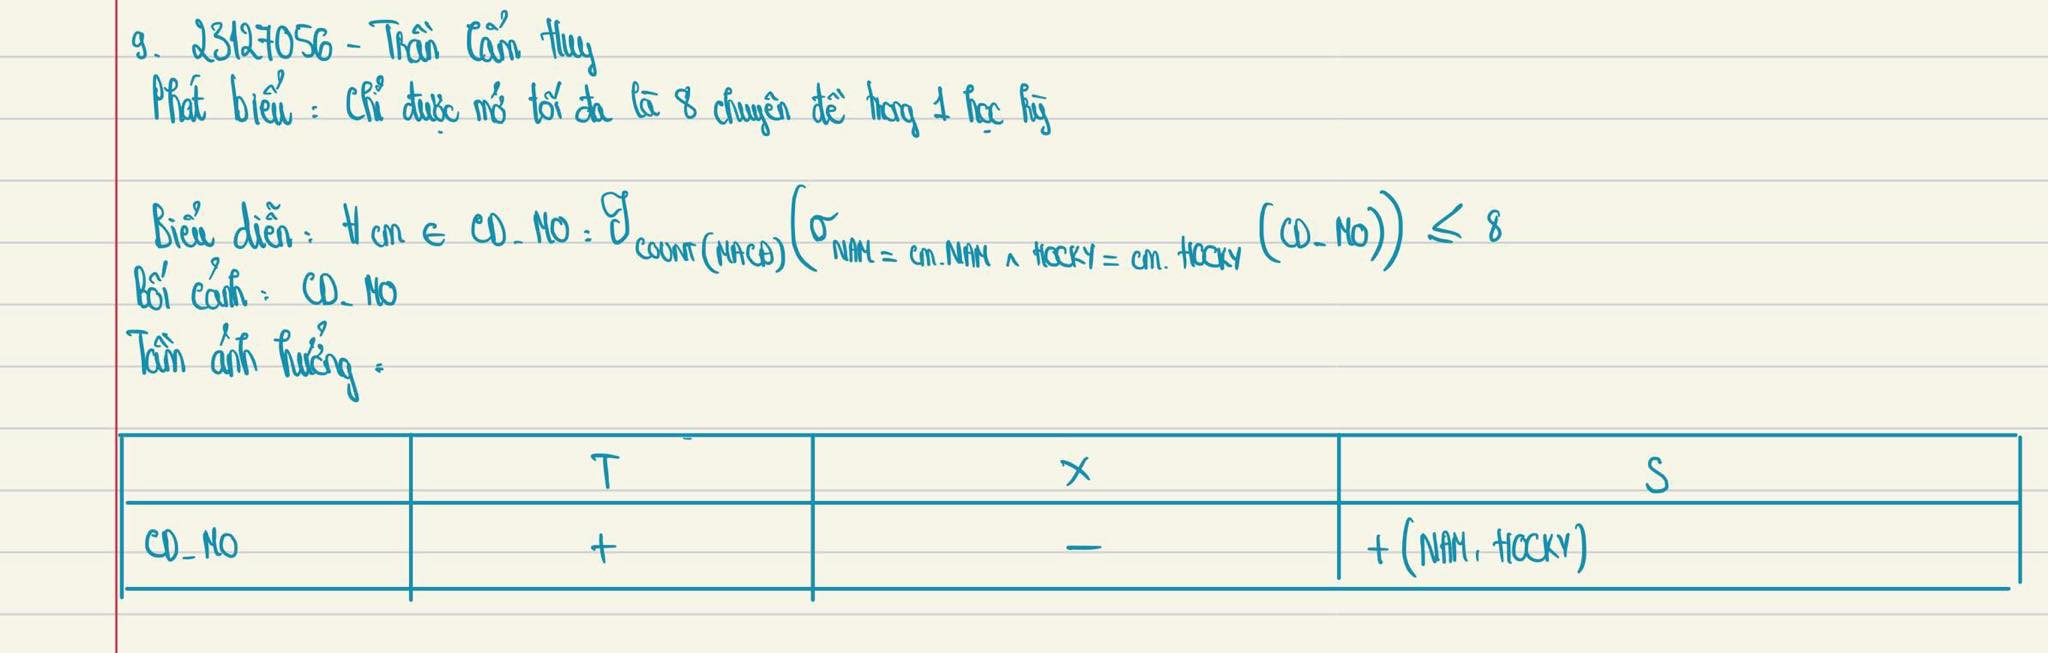 9. 23127056 - Trần Cẩm Huy
Phát biểu : Chỉ được mở tối đa là 8 chuyên đề trong 1 học kỳ
Biểu diễn : ∀ cm ∈ CD_MO : ℑ COUNT(MACD) (σ NAM = cm.NAM ∧ HOCKY = cm.HOCKY (CD_MO)) ≤ 8
Bối cảnh : CD_MO
Tầm ảnh hưởng :
T X S
CD_MO + − + (NAM, HOCKY)